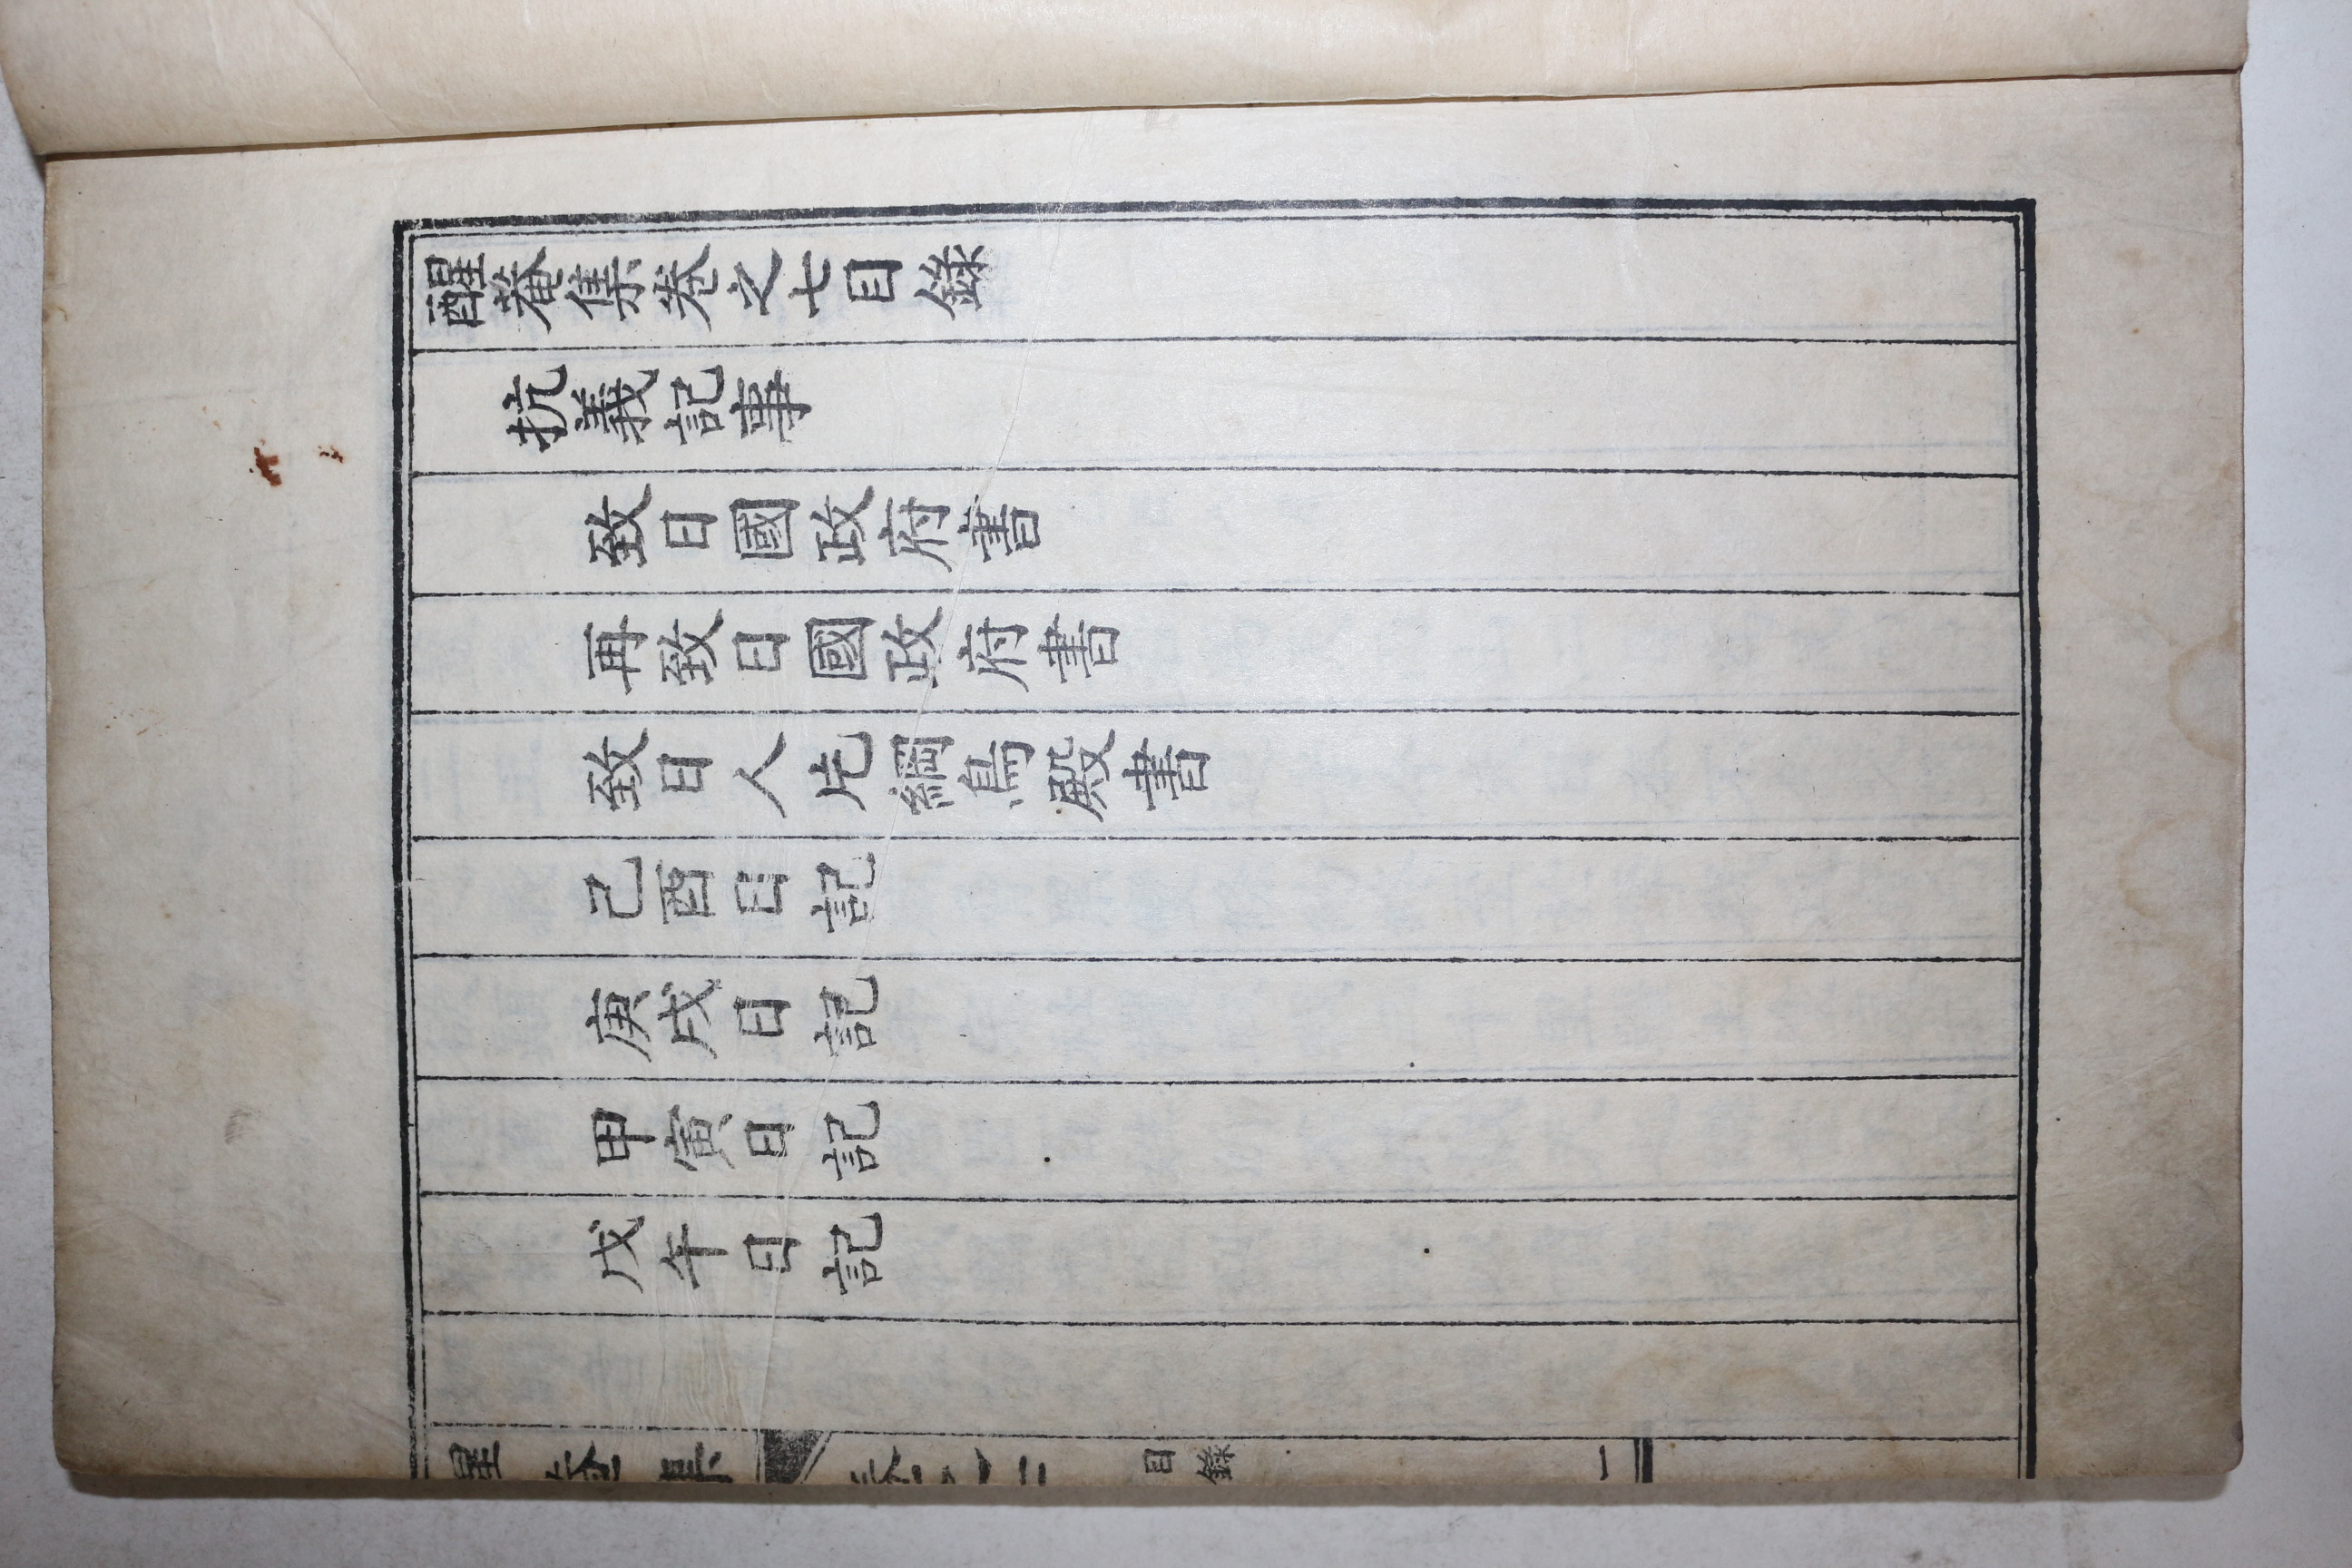 醒菴集卷之七目錄
抗義記事
致日國政府書
再致日國政府書
致日人片綱島殿書
己酉日記
庚戌日記
甲寅日記
戊午日記
目錄
一